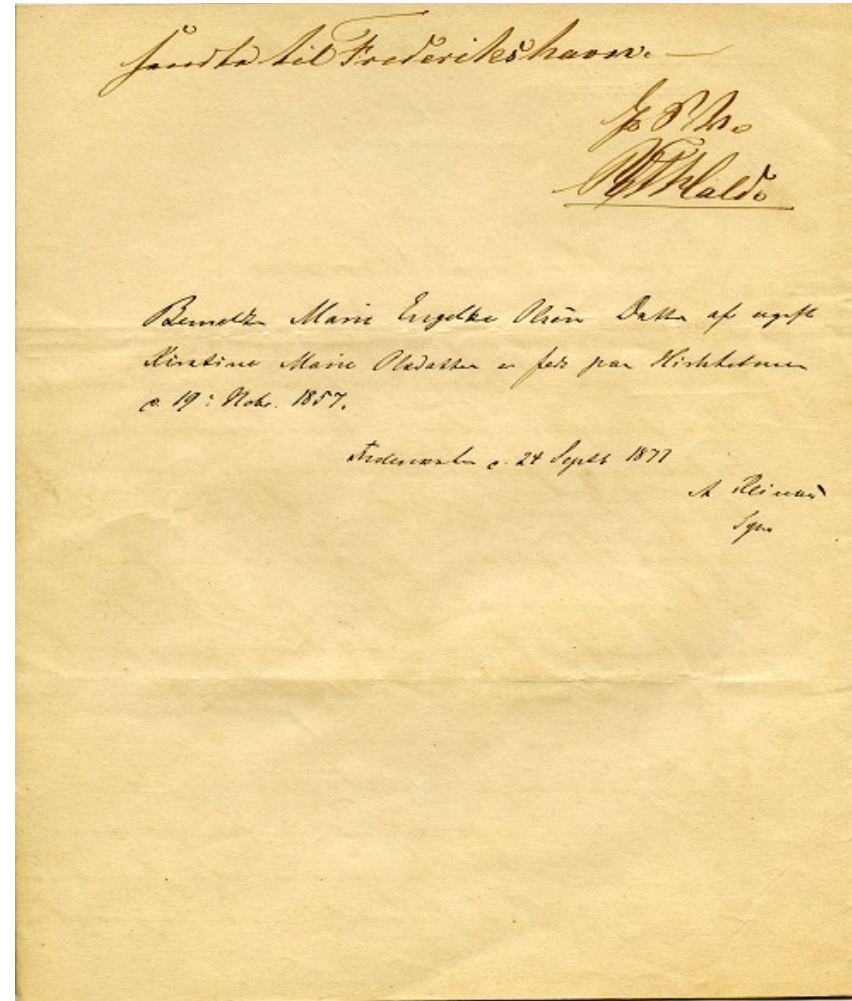 sendte til Frederikshavn. —
Bendte Marie Engelke Olsen Datter af ugift
Kirstine Marie Olsdatter er født paa Hirsholmen
d. 19: Nobr. 1857.
d. 24 Septb 1877
A